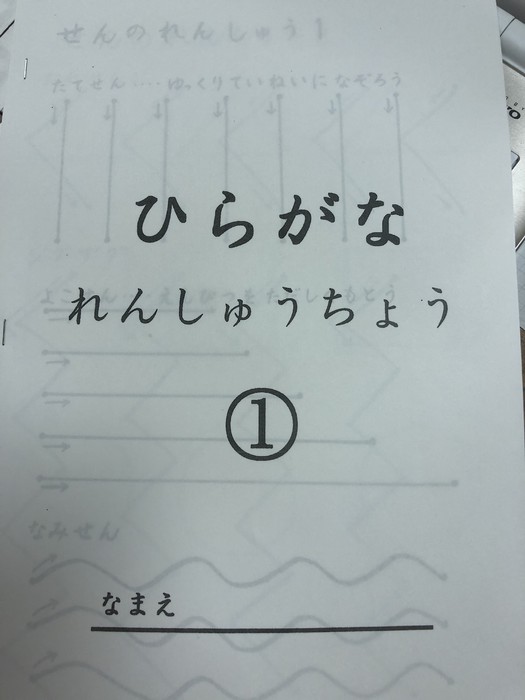 せんのれんしゅう1
たてせん････ゆっくりていねいになぞろう
ひらがな
れんしゅうちょう
①
なみせん
なまえ